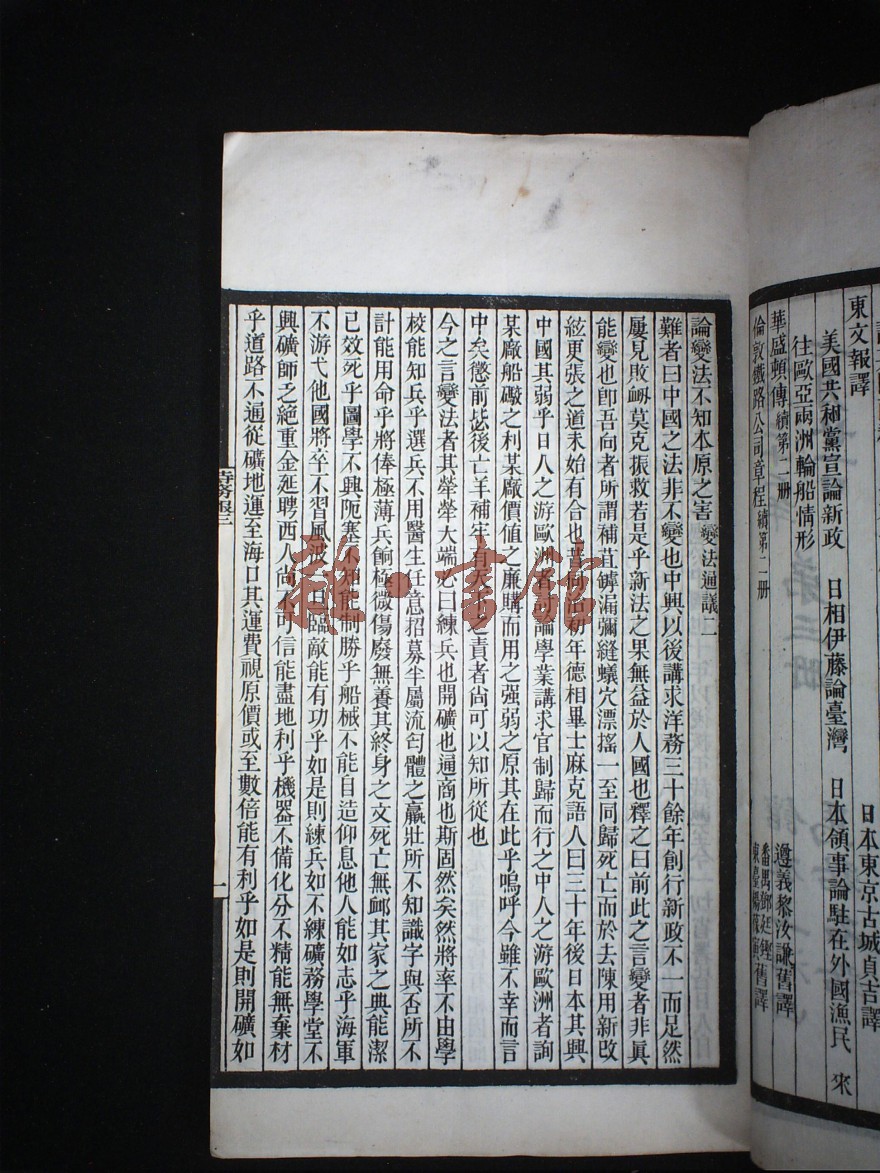 東文報譯
日本東京古城貞吉譯
美國共和黨宣論新政 日相伊藤論臺灣 日本領事論駐在外國漁民 來
往歐亞兩洲輪船情形
華盛頓傳續第二册
遵義黎汝謙舊譯
番禺鄉廷鏗舊譯
倫敦鐵路公司章程續第二册
論變法不知本原之害 變法通議二
難者曰中國之法非不變也中興以後講求洋務三十餘年創行新政不一而足然
屢見敗衂莫克振救若是乎新法之果無益於人國也釋之曰前此之言變者非眞
能變也卽吾向者所謂補苴罅漏彌縫蟻穴漂搖一至同歸死亡而於去陳用新改
絃更張之道未始有合也昔同治初年德相畢士麻克語人曰三十年後日本其興
中國其弱乎日人之游歐洲者討論學業講求官制歸而行之中人之游歐洲者詢
某廠船礮之利某廠價值之廉購而用之强弱之原其在此乎嗚呼今雖不幸而言
中矣懲前毖後亡羊補牢有天下之責者尚可以知所從也
今之言變法者其犖犖大端必曰練兵也開礦也通商也斯固然矣然將率不由學
校能知兵乎選兵不用醫生任意招募半屬流匄體之羸壯所不知識字與否所不
計能用命乎將俸極薄兵餉極微傷廢無養其終身之文死亡無卹其家之典能潔
已效死乎圖學不興阨塞不知能制勝乎船械不能自造仰息他人能如志乎海軍
不游弋他國將卒不習風波一旦臨敵能有功乎如是則練兵如不練礦務學堂不
興礦師乏絶重金延聘西人尚不可信能盡地利乎機器不備化分不精能無棄材
乎道路不通從礦地運至海口其運費視原價或至數倍能有利乎如是則開礦如
時務報三
一
雜·書館